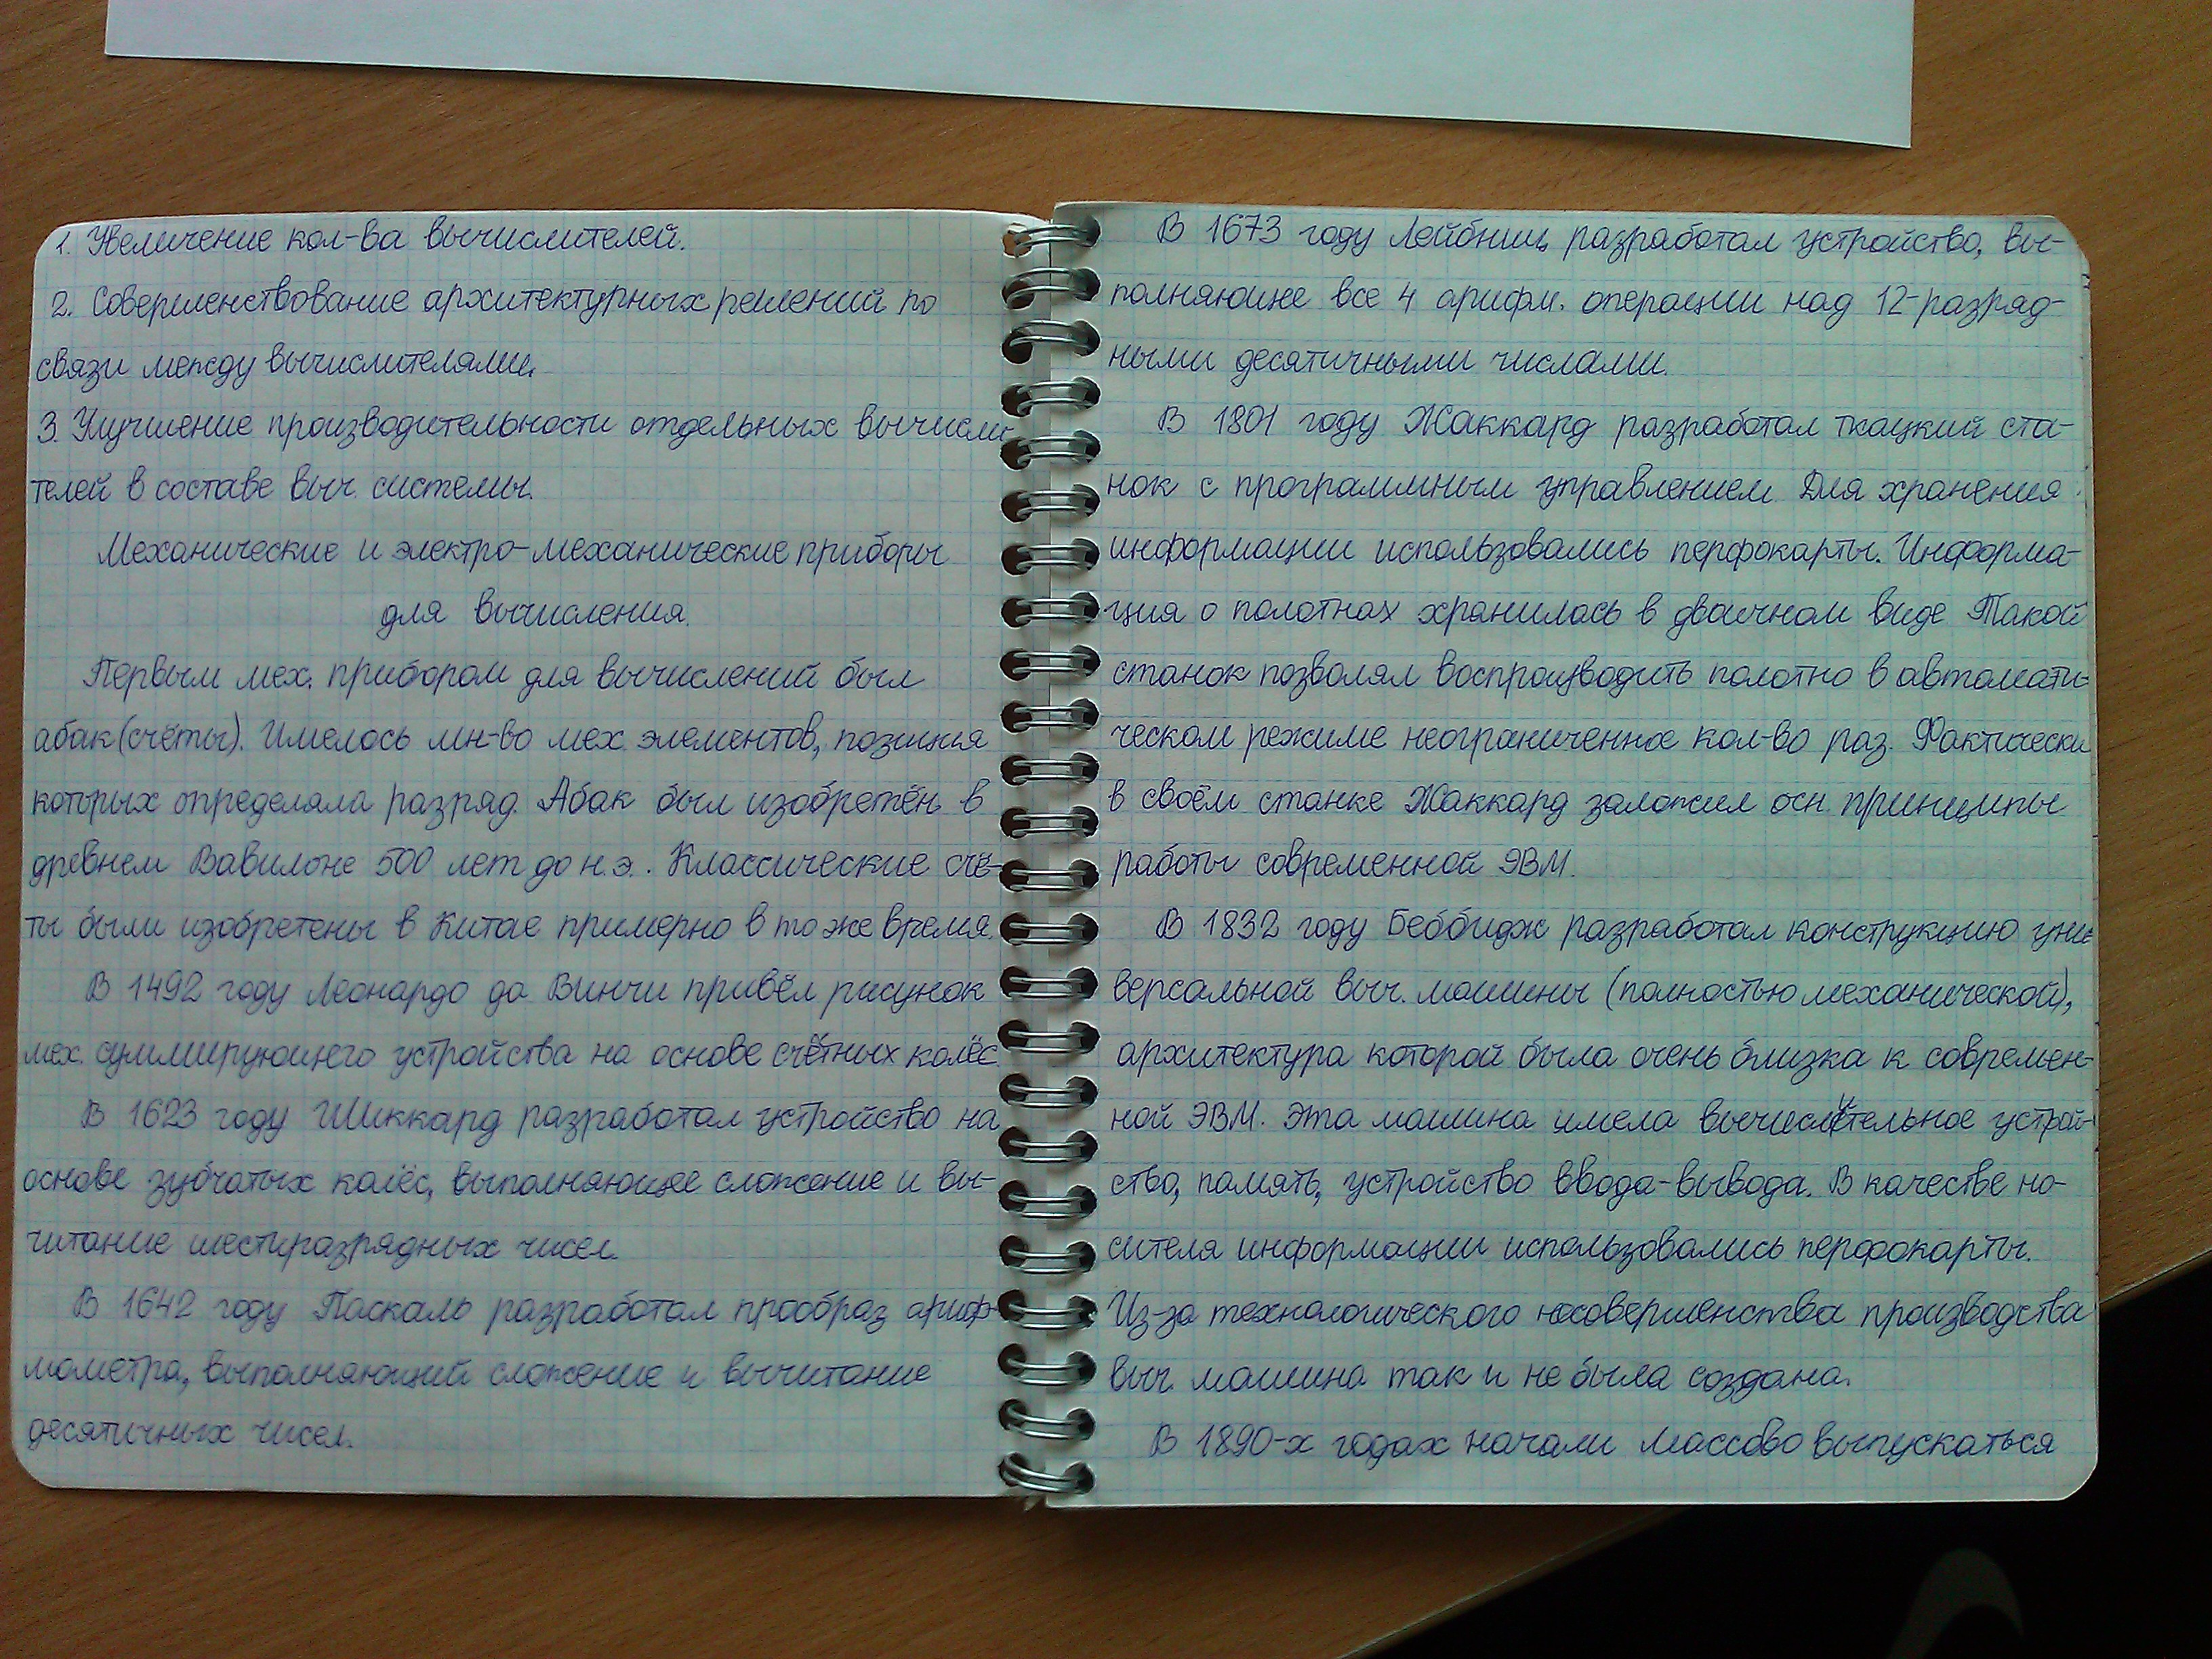 1. Увеличение кол-ва вычислителей.
2. Совершенствование архитектурных решений по
связи между вычислителями.
3. Улучшение производительности отдельных вычисли-
телей в составе выч. системы.
Механические и электро-механические приборы
для вычисления.
Первым мех. прибором для вычислений был
абак (счёты). Имелось мн-во мех. элементов, позиция
которых определяла разряд. Абак был изобретён в
древнем Вавилоне 500 лет до н.э.. Классические счё-
ты были изобретены в Китае примерно в то же время.
В 1492 году Леонардо да Винчи привёл рисунок
мех. суммирующего устройства на основе счётных колёс.
В 1623 году Шиккард разработал устройство на
основе зубчатых колёс, выполняющее сложение и вы-
читание шестиразрядных чисел.
В 1642 году Паскаль разработал прообраз ариф-
мометра, выполняющий сложение и вычитание
десятичных чисел.
В 1673 году Лейбниц разработал устройство, вы-
полняющее все 4 арифм. операции над 12-разряд-
ными десятичными числами.
В 1801 году Жаккард разработал ткацкий ста-
нок с программным управлением. Для хранения
информации использовались перфокарты. Информа-
ция о полотнах хранилась в двоичном виде. Такой
станок позволял воспроизводить полотно в автомати-
ческом режиме неограниченное кол-во раз. Фактически
в своём станке Жаккард заложил осн. принципы
работы современной ЭВМ.
В 1832 году Беббидж разработал конструкцию уни-
версальной выч. машины (полностью механической),
архитектура которой была очень близка к современ-
ной ЭВМ. Эта машина имела вычислительное устрой-
ство, память, устройство ввода-вывода. В качестве но-
сителя информации использовались перфокарты.
Из-за технологического несовершенства производства
выч. машина так и не была создана.
В 1890-х годах начали массово выпускаться